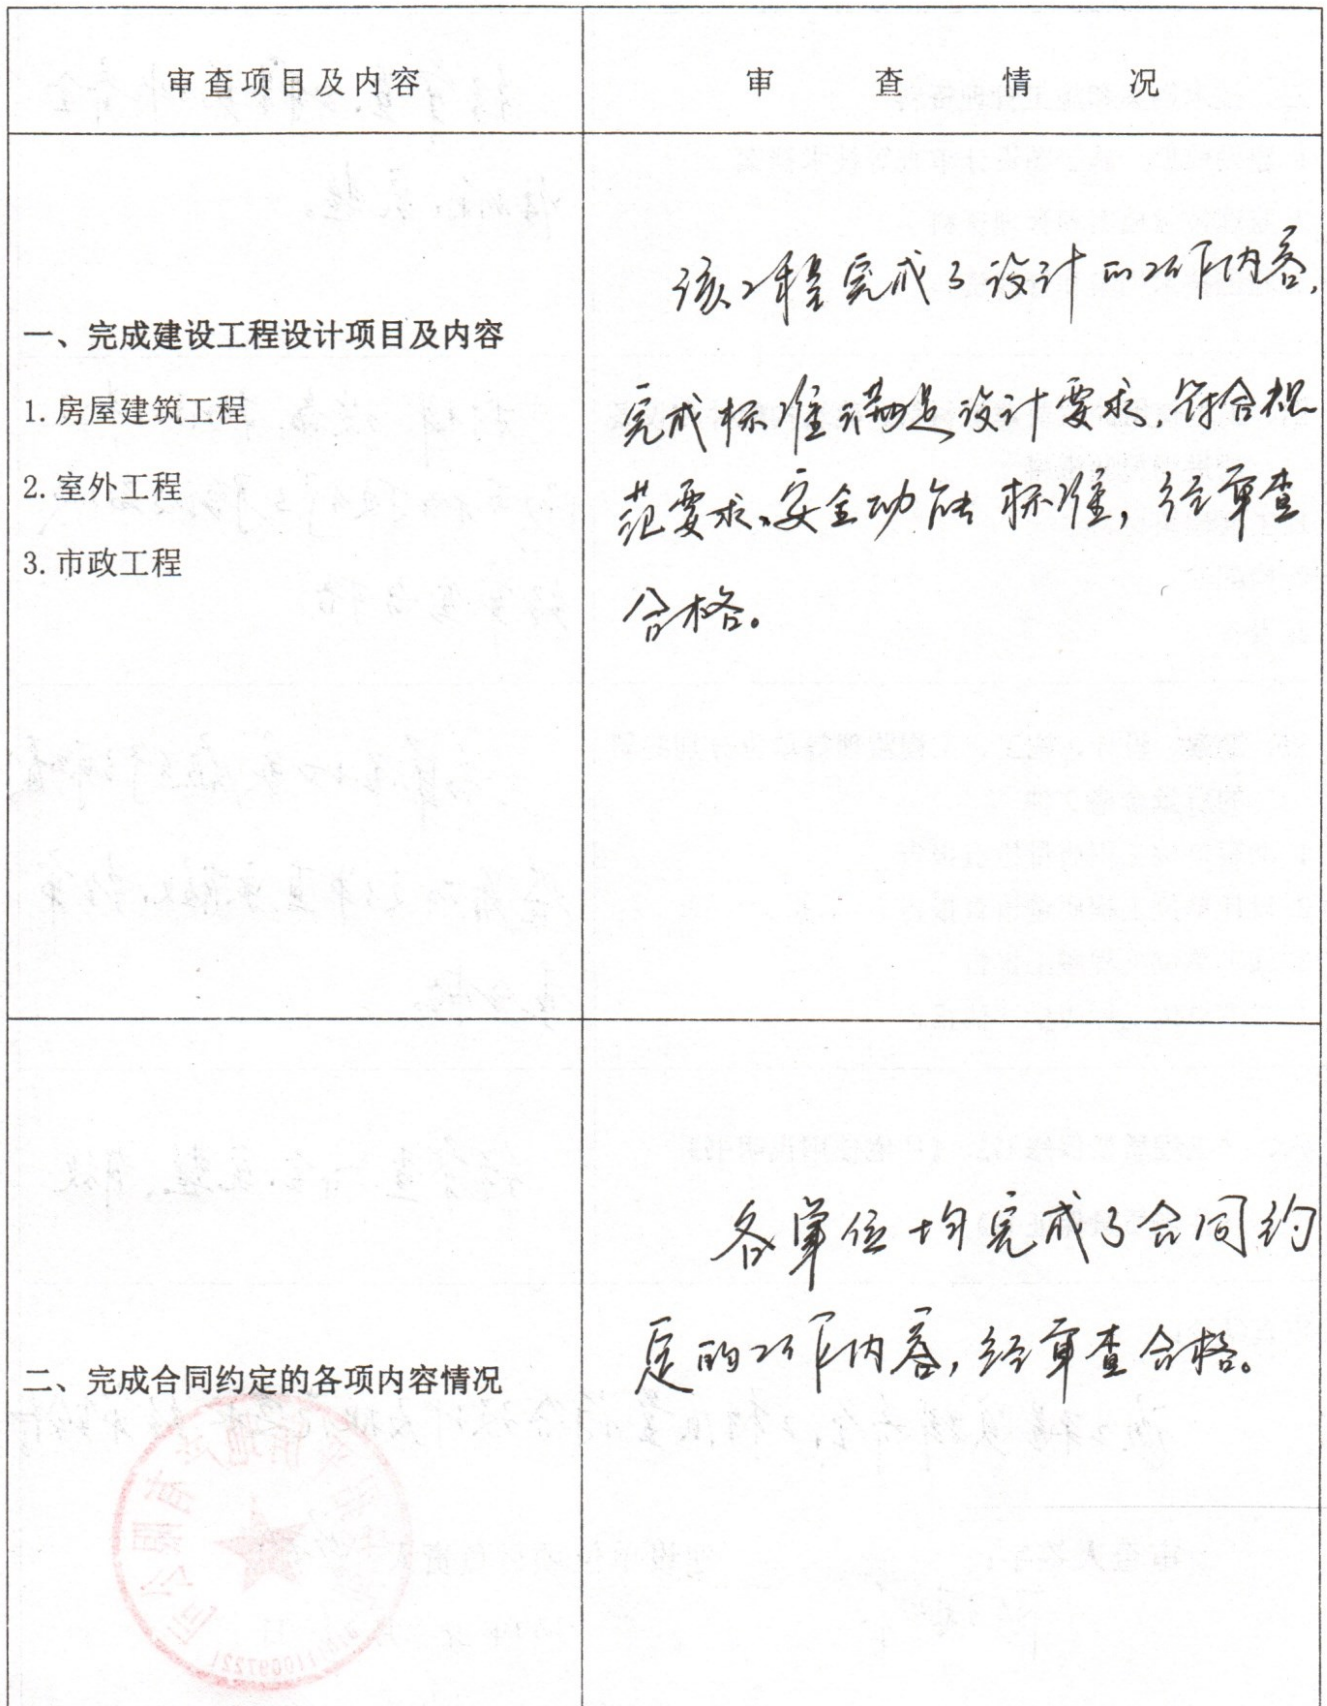 审查项目及内容
审查情况
一、完成建设工程设计项目及内容
1.房屋建筑工程
2.室外工程
3.市政工程
该工程完成了设计的工作内容,
完成标准满足设计要求,符合规
范要求、安全功能标准,经审查
合格。
二、完成合同约定的各项内容情况
各单位均完成了合同约
定的工作内容,经审查合格。